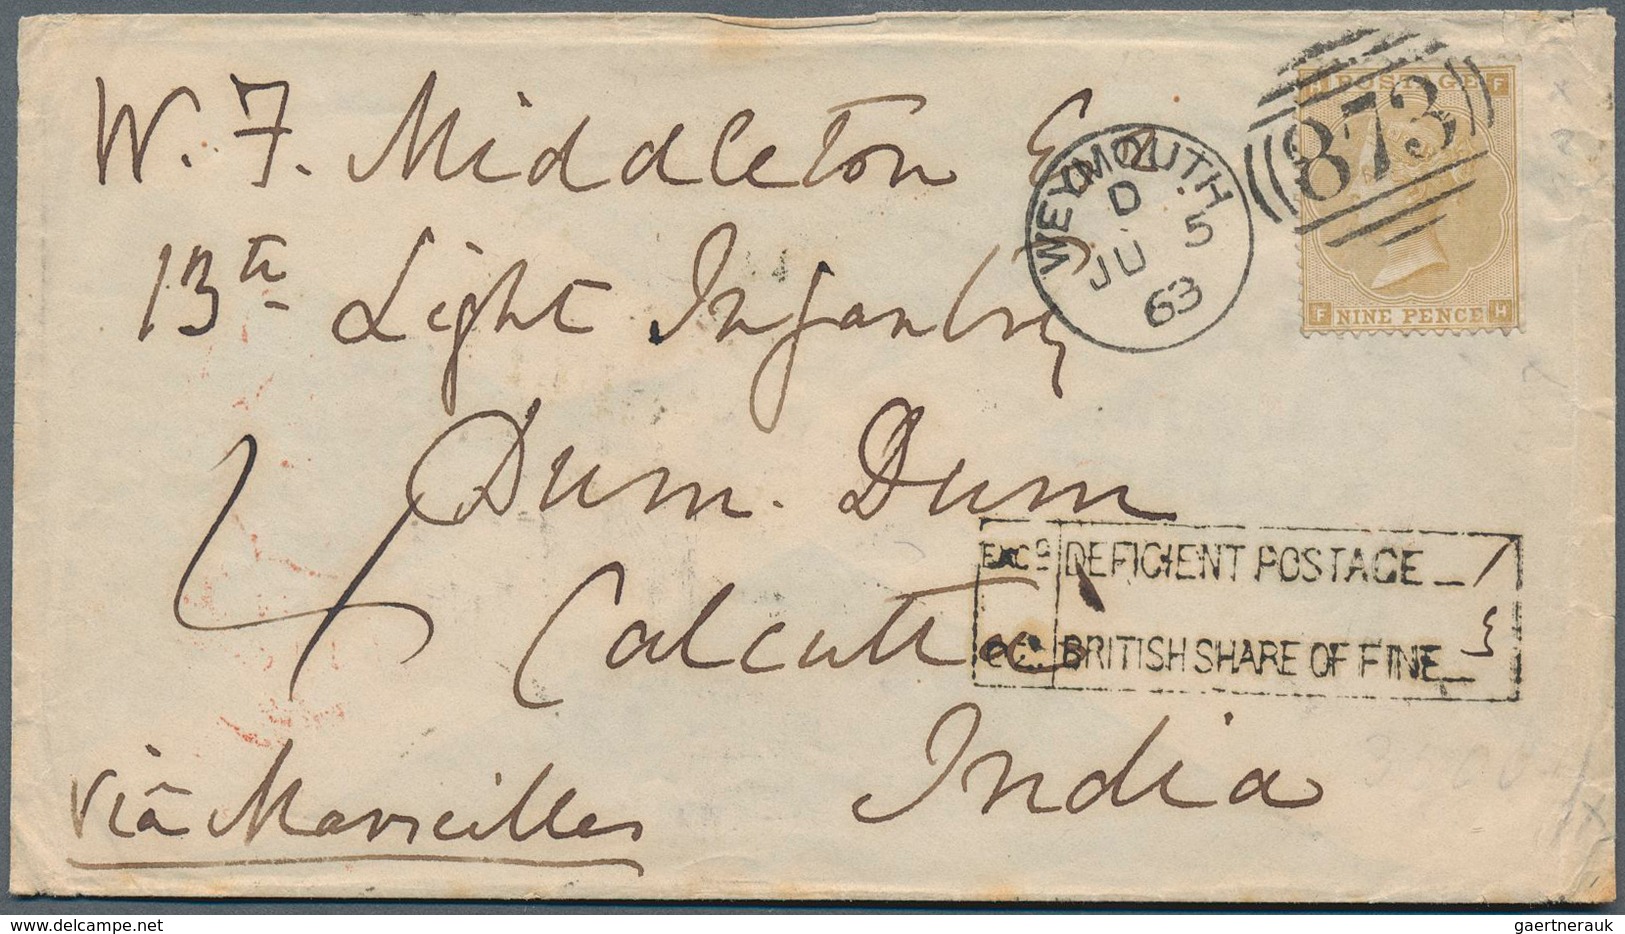 W. F. Middleton Esq.
13th Light Infantry
Dum. Dum
Calcutta
India
viâ Marseilles
WEYMOUTH
D
JU 5
63
873
H POSTAGE F
F NINE PENCE H
DEFICIENT POSTAGE
BRITISH SHARE OF FINE
www.delcampe.net
gaertnerauk